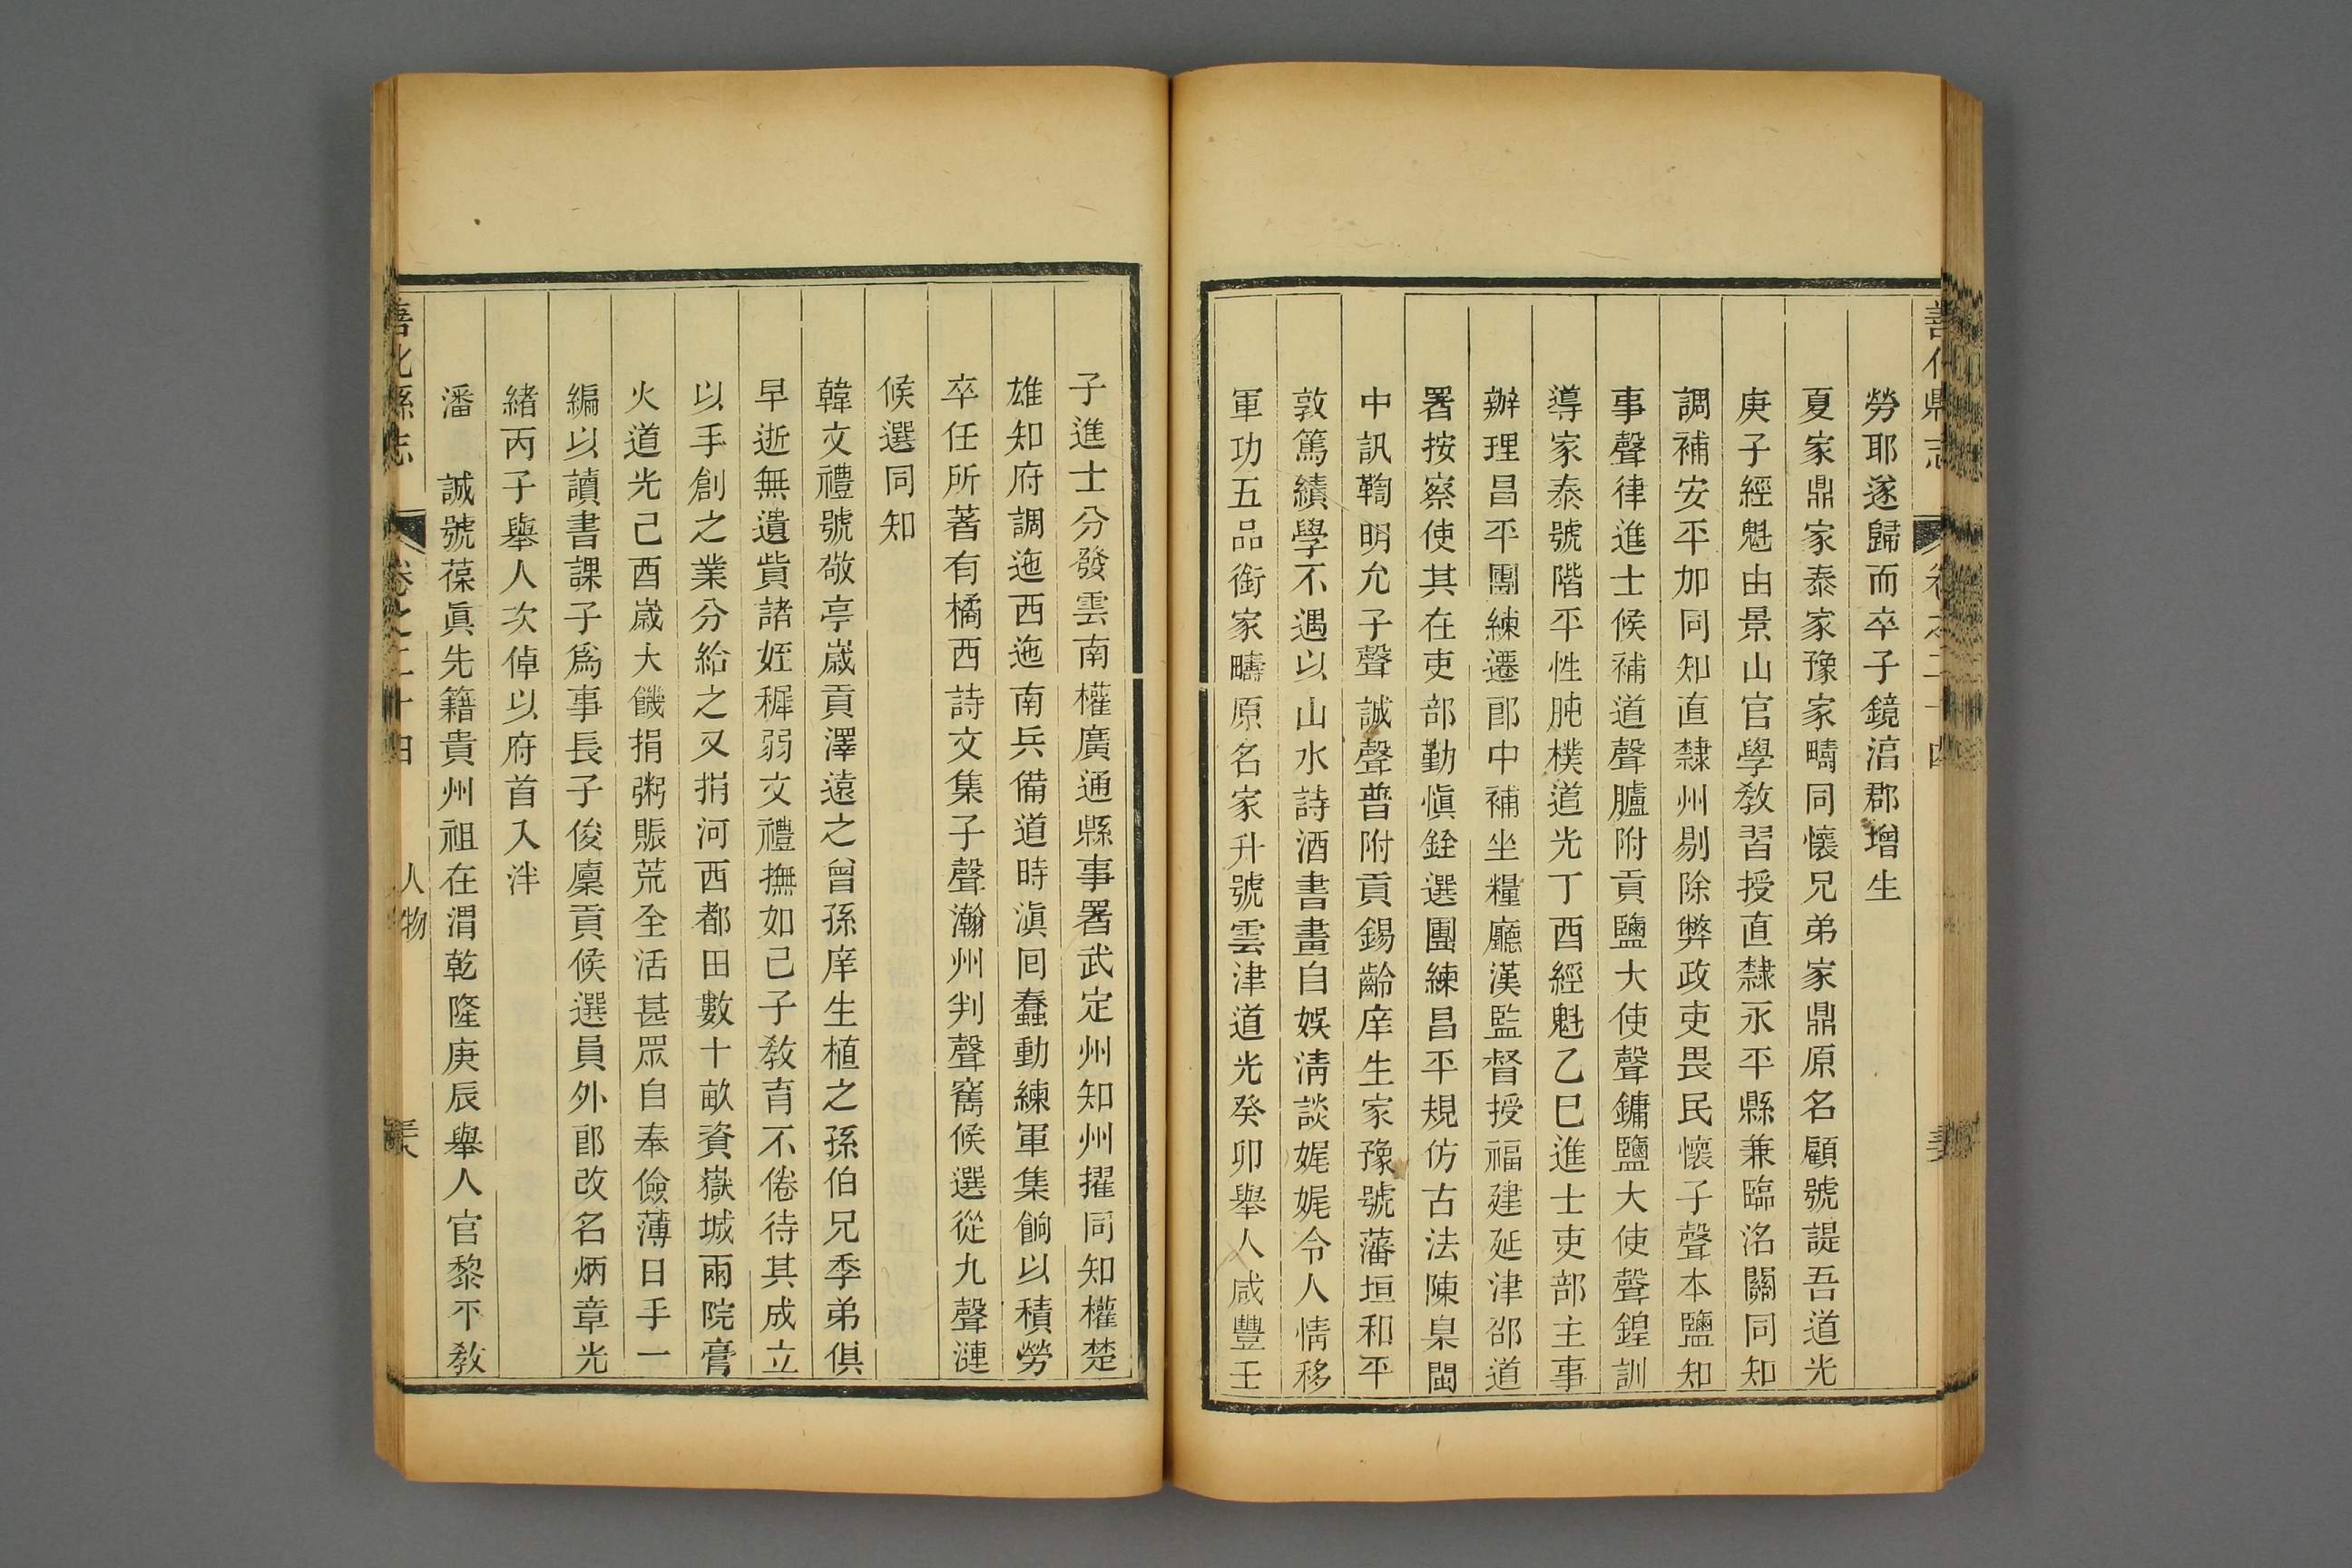 善化縣志
卷之二十四
勞耶遂歸而卒子鏡涪郡增生
夏家鼎家泰家豫家疇同懷兄弟家鼎原名顧號諟吾道光
庚子經魁由景山官學教習授直隸永平縣兼臨洺關同知
調補安平加同知直隸州剔除弊政吏畏民懷子聲本鹽知
事聲律進士候補道聲臚附貢鹽大使聲鏞鹽大使聲鍠訓
導家泰號階平性肫樸道光丁酉經魁乙巳進士吏部主事
辦理昌平團練遷郎中補坐糧廳漢監督授福建延津邵道
署按察使其在吏部勤慎銓選團練昌平規仿古法陳臬閩
中訊鞫明允子聲誠聲普附貢錫齡庠生家豫號藩垣和平
敦篤績學不遇以山水詩酒書畫自娛淸談娓娓令人情移
軍功五品銜家疇原名家升號雲津道光癸卯舉人咸豐壬
子進士分發雲南權廣通縣事署武定州知州擢同知權楚
雄知府調迤西迤南兵備道時滇回蠢動練軍集餉以積勞
卒任所著有橘西詩文集子聲瀚州判聲寯候選從九聲漣
候選同知
韓文禮號敬亭歲貢澤遠之曾孫庠生植之孫伯兄季弟俱
早逝無遺貲諸姪穉弱文禮撫如己子教育不倦待其成立
以手創之業分給之又捐河西都田數十畝資嶽城兩院膏
火道光己酉歲大饑捐粥賑荒全活甚眾自奉儉薄日手一
編以讀書課子爲事長子俊廩貢候選員外郎改名炳章光
緒丙子舉人次倬以府首入泮
潘　誠號葆眞先籍貴州祖在渭乾隆庚辰舉人官黎平教
善化縣志
卷之二十四
人物